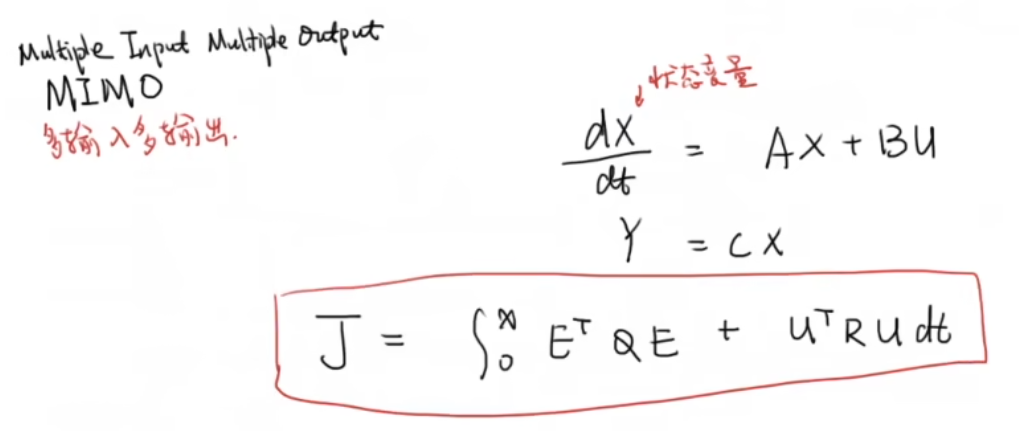 Multiple Input Multiple Output
MIMO
多输入多输出.
状态变量
dX/dt = AX + BU
Y = CX
J = ∫₀^∞ EᵀQE + UᵀRU dt